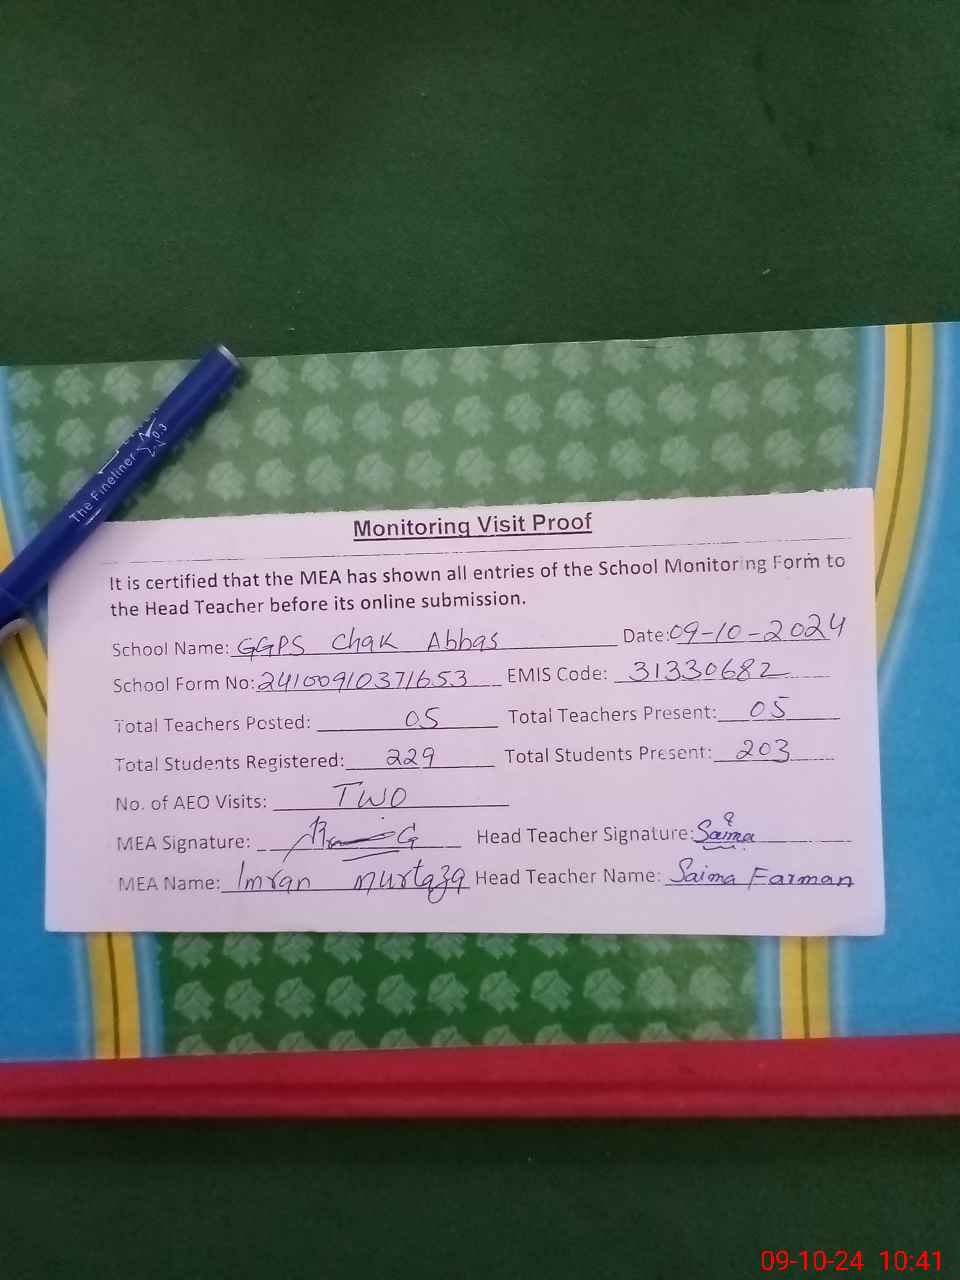 The Fineliner 0.3
Monitoring Visit Proof
It is certified that the MEA has shown all entries of the School Monitoring Form to
the Head Teacher before its online submission.
School Name: GGPS Chak Abbas Date: 09-10-2024
School Form No: 24100910371653 EMIS Code: 31330682
Total Teachers Posted: 05 Total Teachers Present: 05
Total Students Registered: 229 Total Students Present: 203
No. of AEO Visits: TWO
MEA Signature: Head Teacher Signature: Saima
MEA Name: Imran murtaza Head Teacher Name: Saima Farman
09-10-24 10:41